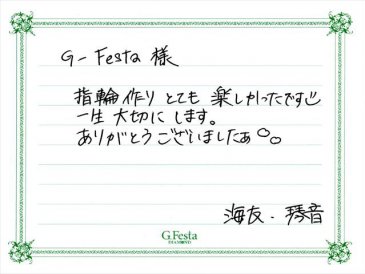 G-Festa 様
指輪作り とても 楽しかったです
一生 大切に します。
ありがとうございましたぁ
海友・琴音
G.Festa
DIAMOND